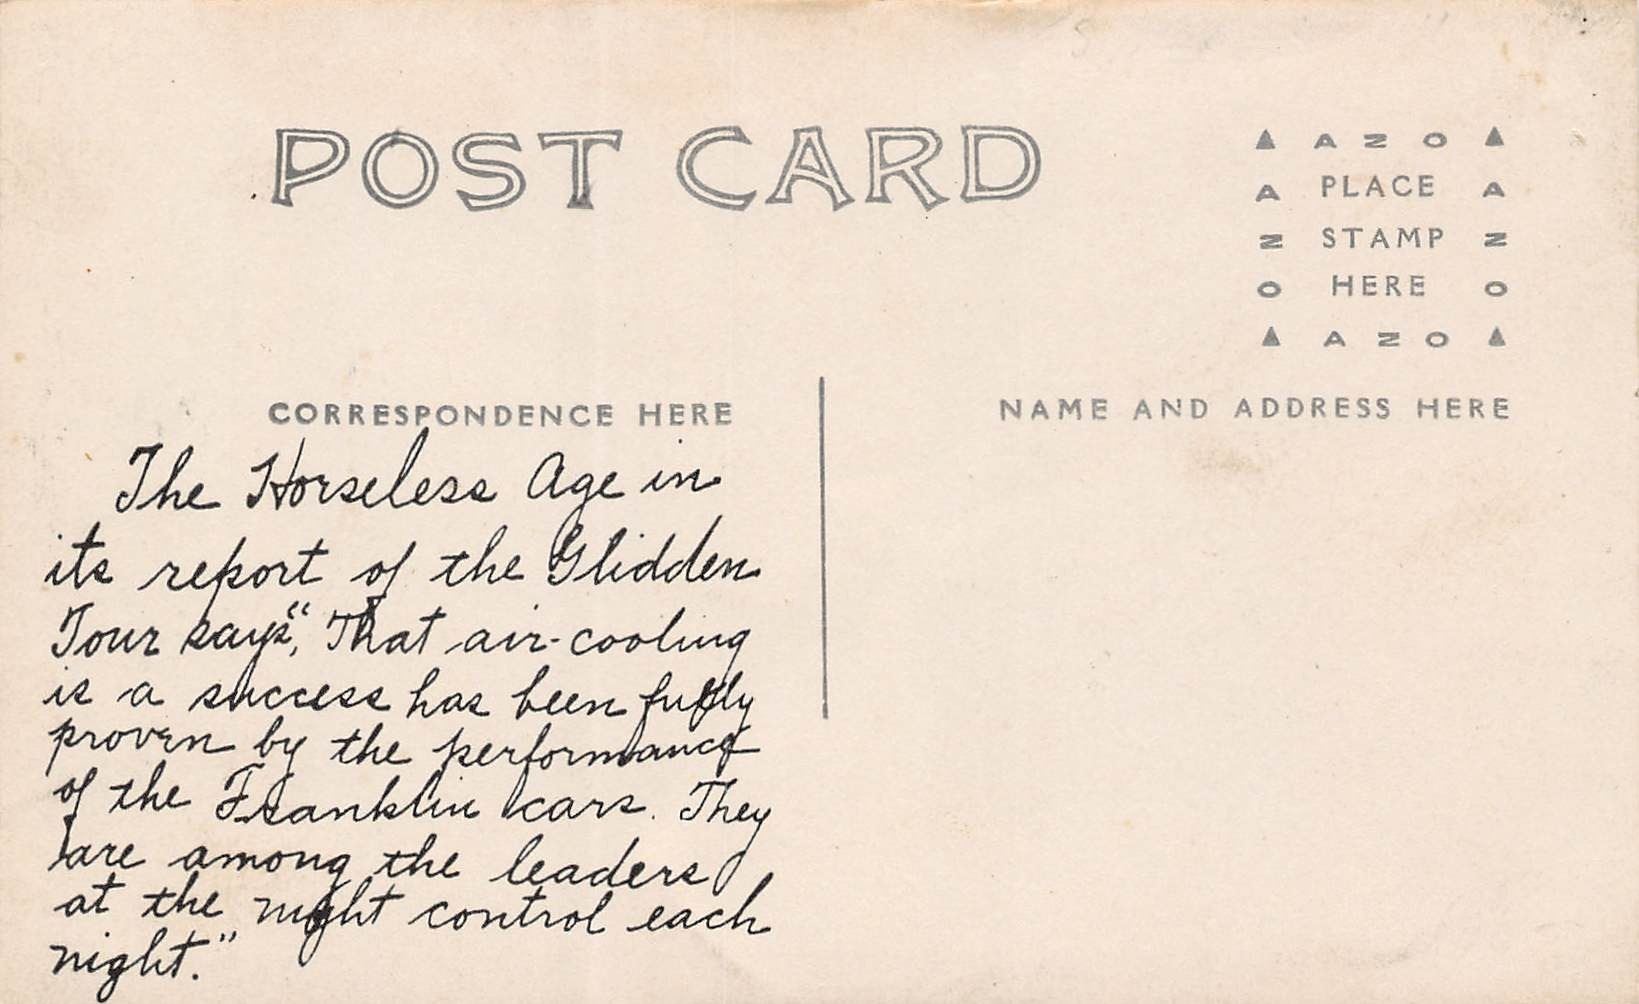 POST CARD
▲ AZO ▲
A PLACE A
Z STAMP Z
O HERE O
▲ AZO ▲
CORRESPONDENCE HERE
NAME AND ADDRESS HERE
The Horseless Age in
its report of the Glidden
Tour says, "That air-cooling
is a success has been fully
proven by the performance
of the Franklin cars. They
are among the leaders
at the night control each
night."